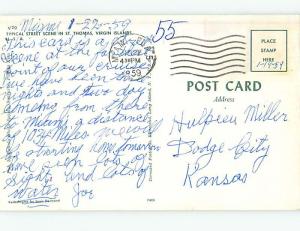 V70 Miami 1-22-59
TYPICAL STREET SCENE IN ST. THOMAS, VIRGIN ISLANDS.
55
This card is a
scene at the
point of our cruise
we have been two
nights and two days
coming from there
to Miami a distance
of 1024 Miles we will
be starting home tomorrow
have seen lots of
sights and lots of
water Joe
4 PM
1959
PLACE
STAMP
HERE
1-19-59
POST CARD
Address
Hulpieu Miller
Dodge City
Kansas